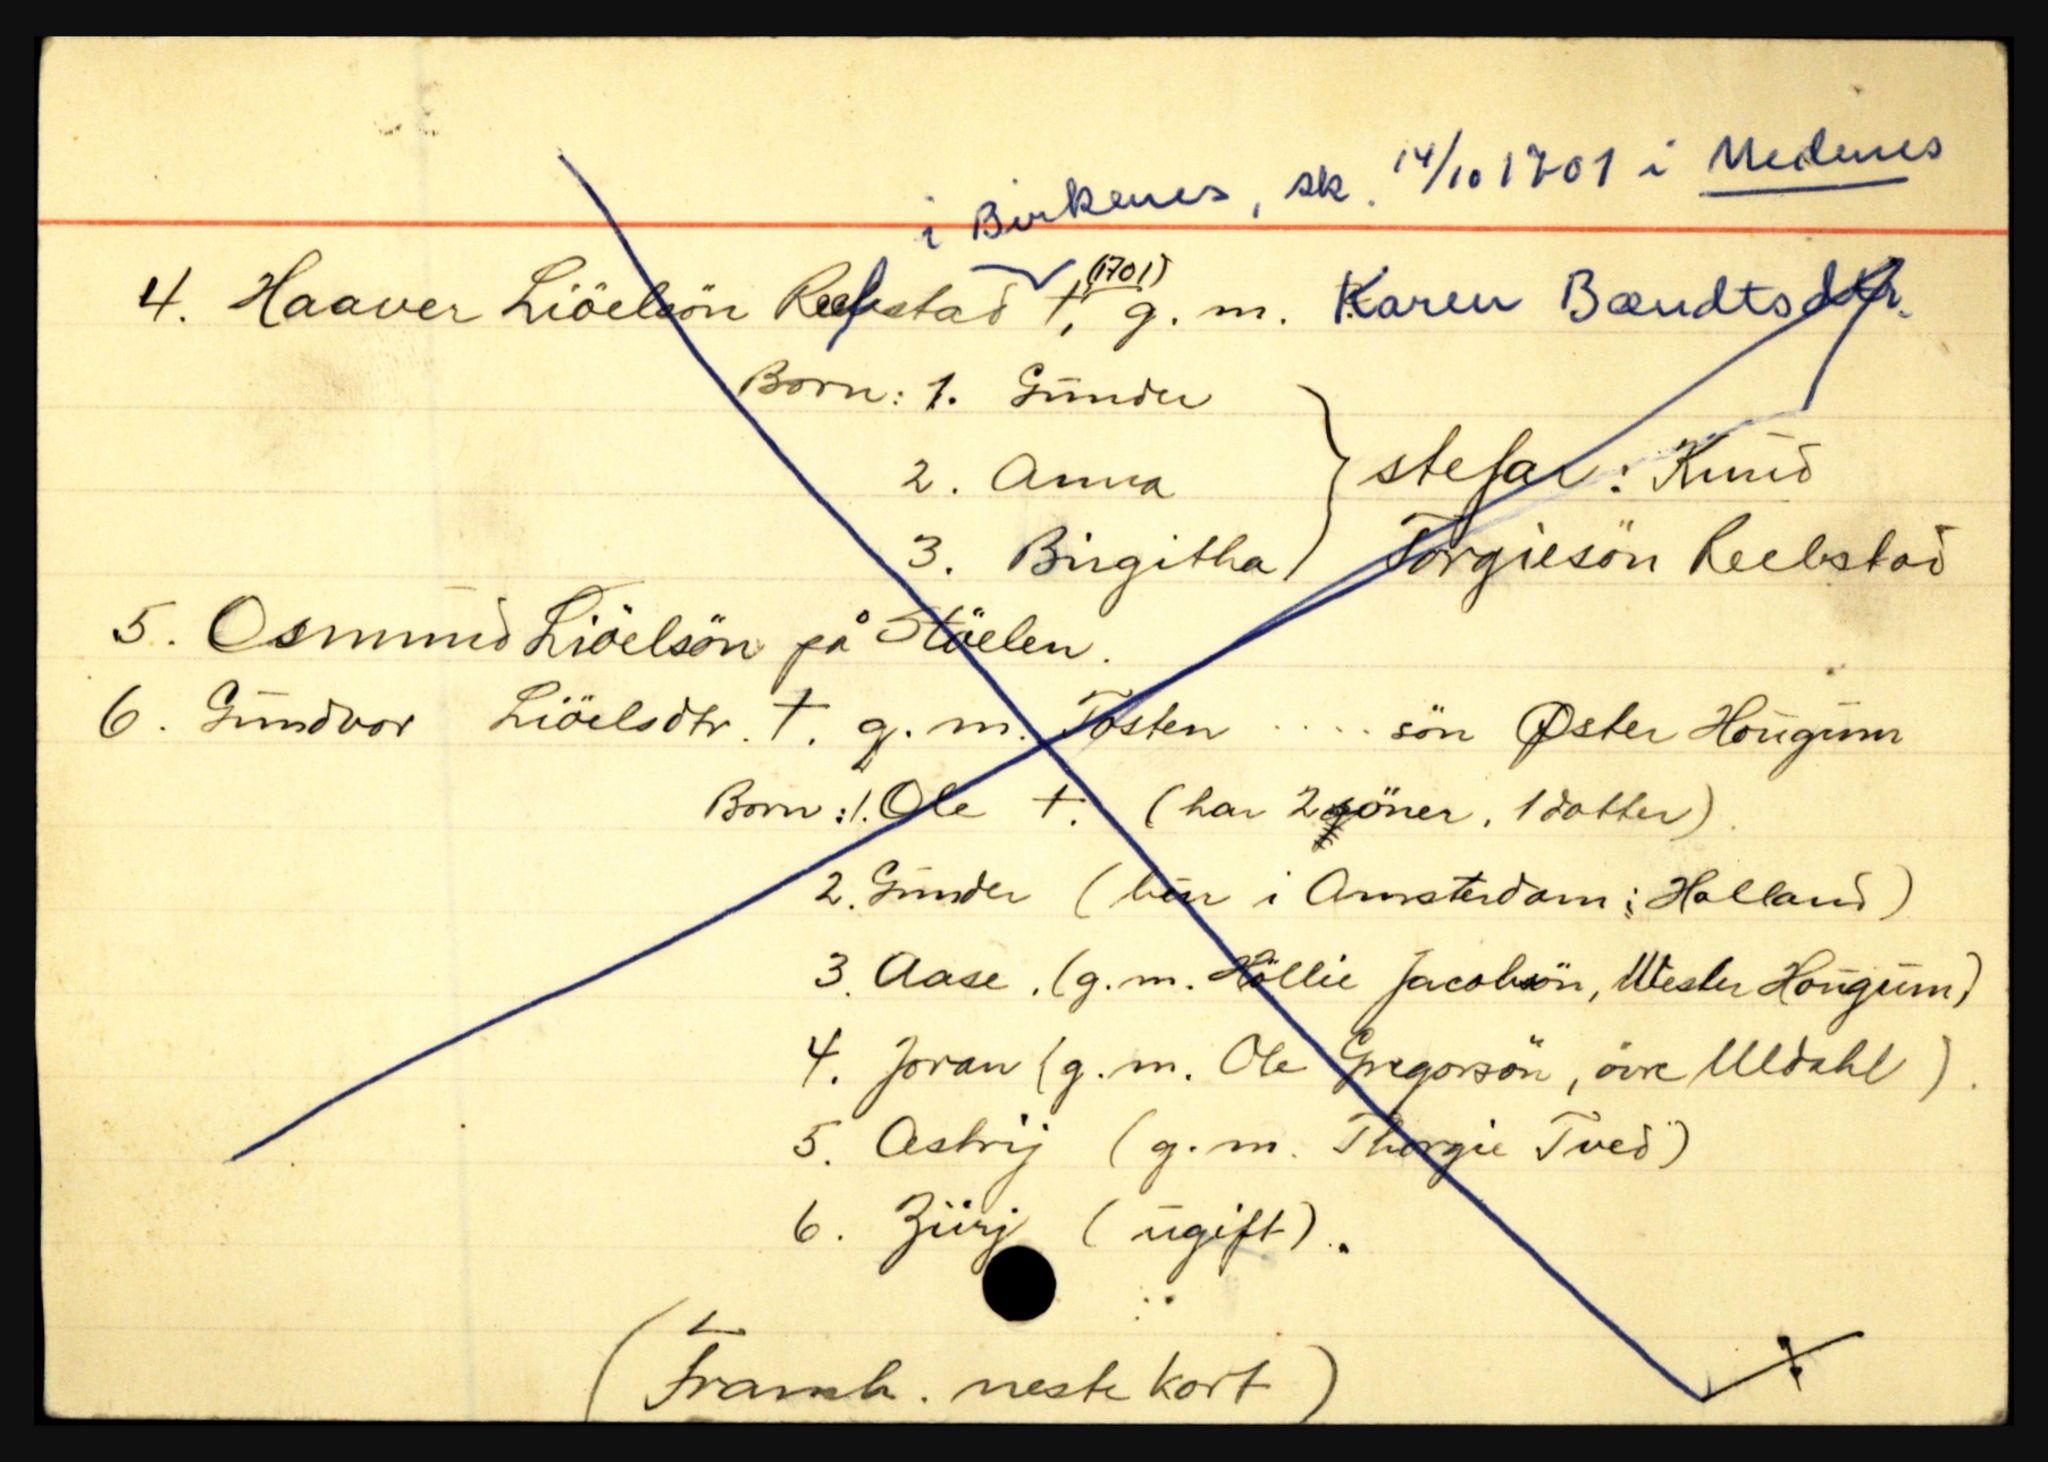 i Birkenes, sk. 14/10 1701 i Nedenes
4. Haaver Liöelsön Reefstad †, (1701) g. m. Karen Bændtsdtr.
Born: 1. Gŭnder
2. Anna
3. Birgitha
stefar: Knŭd
Torgiesön Reebstad
5. Osmŭnd Liöelsön på Stöelen.
6. Gŭndvor Liöelsdtr. †. g. m. Tosten .... sön Øster Hoŭgŭm
Born: 1. Ole †. (har 2 söner, 1 dotter).
2. Gŭnder (bŭr i Amsterdam i Holland)
3. Aase. (g. m. Höllie Jacobsön, Wester Hoŭgŭm)
4. Joran (g. m. Ole Gregorsön, övre Uldahl).
5. Astrij (g. m. Thorgie Tved)
6. Zirij (ŭgift).
(Framh. neste kort)